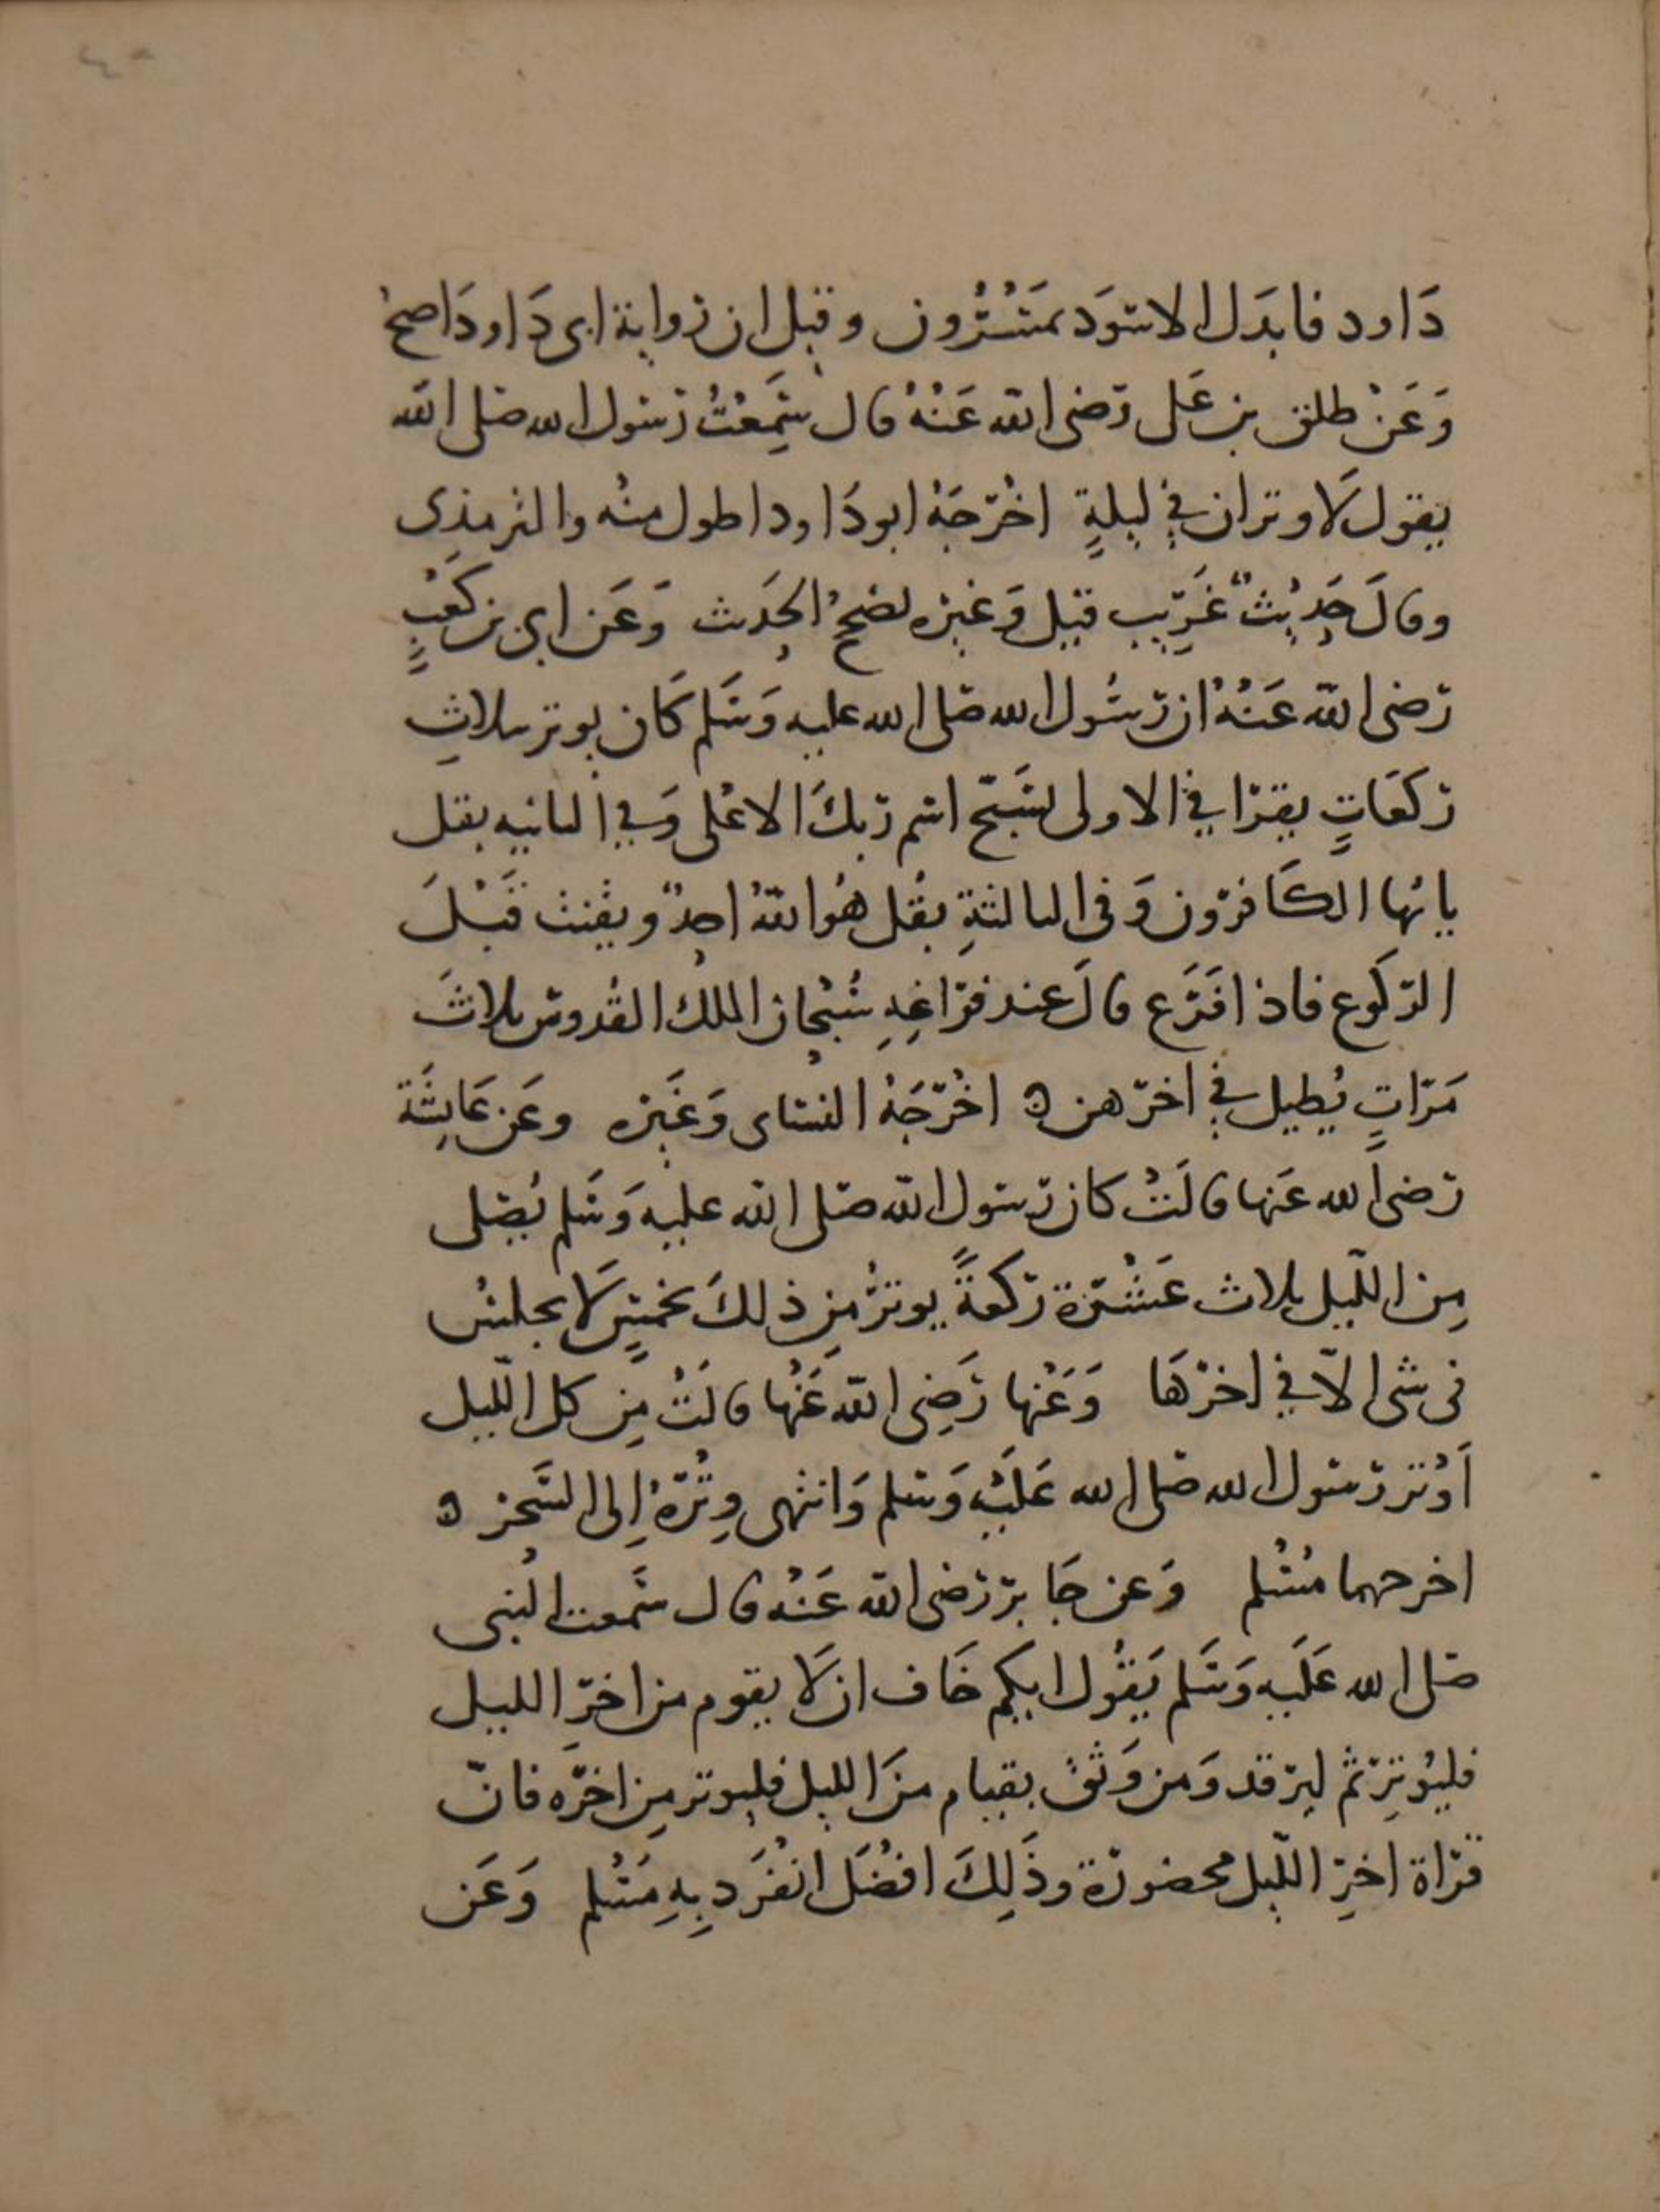 ٤٠
دَاود فابدَل الاسوَد بمَسْرُون وقيل ان رواية ابى دَاود اصح
وَعَنْ طلق بن عَلى رضى الله عَنْهُ قال سَمِعْتُ رسول الله صلى الله
يقول لَا وتران فِي ليلةٍ اخْرَجَهُ ابو دَاود اطول منْه والترمذِى
وقالَ حَدِيْثٌ غَرِيب قيل وَغيره يصَححُ الحَدِيث وَعَن ابى بن كعْبٍ
رَضى الله عَنْهُ ان رسُول الله صلى الله عليه وَسَلم كَان يوتر بثلاثِ
ركعَاتٍ يقرَا فِي الاولى بسَبّح اسم رَبكَ الاعْلى وَفِي الثانيه بقل
يا يُها الكَافرُون وَفى الثالثةِ بقُل هُو اللهُ احدٌ ويقنت قَبْلَ
الرّكوع فاذا فَرَغ قالَ عند فرَاغِهِ سُبْحَان الملك القُدوس ثلاثَ
مَرّاتٍ يُطيل فِي اخرهن ه اخْرَجَهُ النسَاى وَغَيره وعَن عَايشَة
رضى الله عَنها قالَتْ كان رَسول الله صَلى الله عليه وَسَلم يُصَلى
مِن اللّيل ثلاث عَشْرَة ركعَةً يوترُ مِن ذلكَ بخمسٍ لَا يجلسُ
فى شى الّا فِي اخرْهَا وَعَنْها رَضِى الله عَنْها قالَتْ مِن كل اللّيل
اَوْتر رَسول الله صَلى الله عَلَيْه وَسلم وَانتهى وِتْرَهُ اِلى السَّحَر ه
اخرجهما مُسْلم وَعن جَابر رَضى الله عَنْه قال سَمعت النبى
صَلى الله عَلَيه وَسَلم يَقُول ايكم خَاف ان لَا يقوم من اخرِ الليل
فليُوتِرْ ثم ليرقد وَمن وَثق بقيام منَ الليل فليوتر مِن اخرَه فانّ
قرَاة اخِرِ اللّيل محضورَة وذَلِكَ افضَل انْفَرَد بِهِ مُسْلم وَعَن